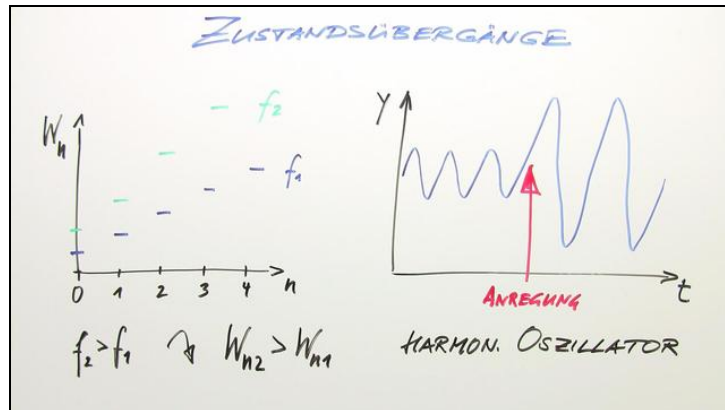 ZUSTANDSÜBERGÄNGE
Wn
f2
f1
0 1 2 3 4 n
f2 > f1 ↷ Wn2 > Wn1
y
ANREGUNG
t
HARMON. OSZILLATOR